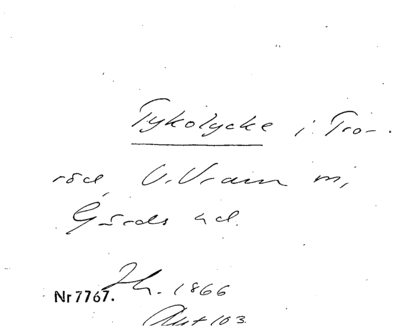 Tykolycke i Tro-
röd, V. Vram m,
Gärds hd.
Nr 7767. Zh. 1866
Akt 103